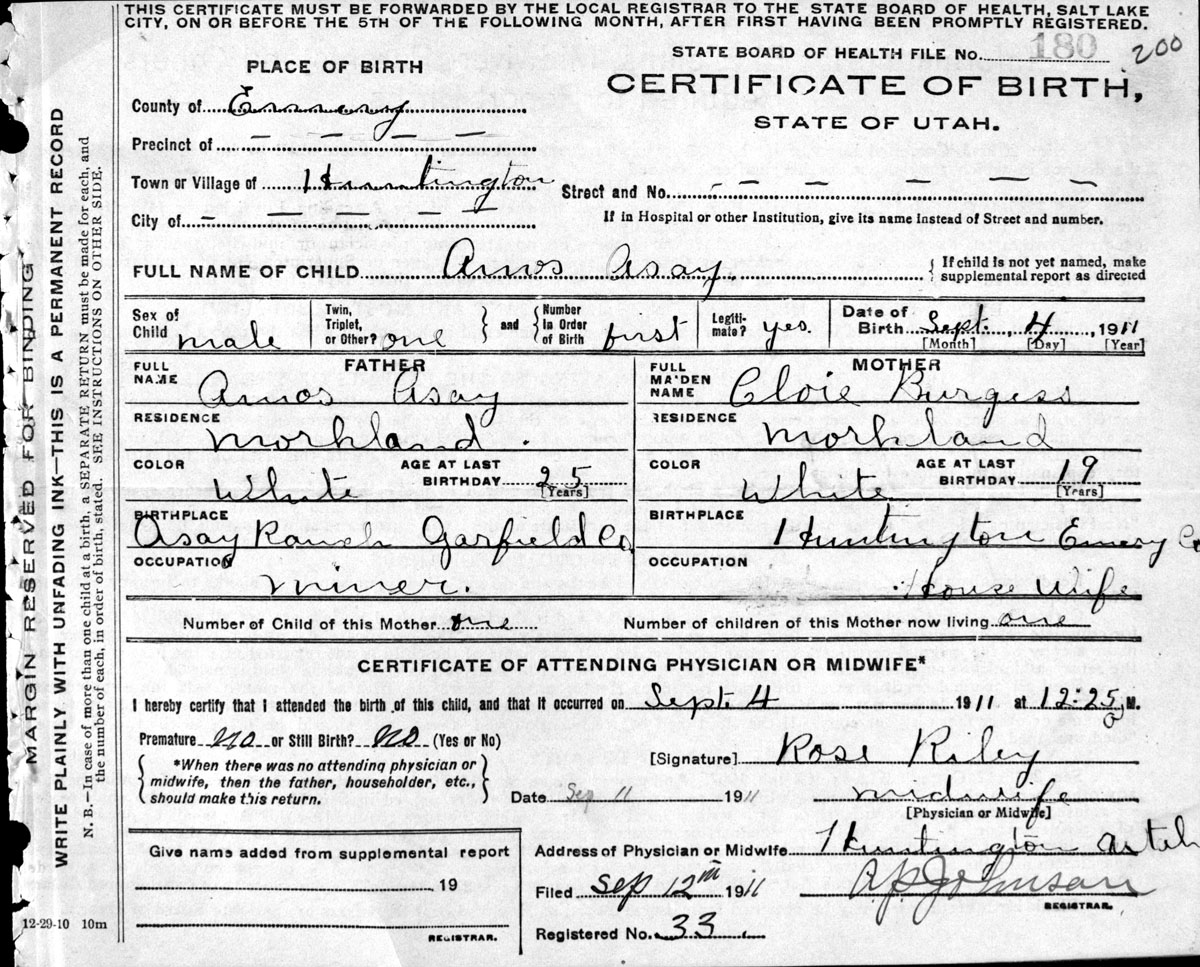 THIS CERTIFICATE MUST BE FORWARDED BY THE LOCAL REGISTRAR TO THE STATE BOARD OF HEALTH, SALT LAKE
CITY, ON OR BEFORE THE 5TH OF THE FOLLOWING MONTH, AFTER FIRST HAVING BEEN PROMPTLY REGISTERED.
STATE BOARD OF HEALTH FILE No. 180 200
PLACE OF BIRTH
CERTIFICATE OF BIRTH,
STATE OF UTAH.
County of Emery
Precinct of – – – –
Town or Village of Huntington
Street and No. – – – – –
City of – – – – –
If in Hospital or other Institution, give its name instead of Street and number.
FULL NAME OF CHILD Amos Asay
{ If child is not yet named, make
supplemental report as directed
Sex of Child male
Twin, Triplet, or Other? one
and
Number in Order of Birth first
Legiti-mate? yes.
Date of Birth Sept. 4 1911
[Month] [Day] [Year]
FATHER
FULL NAME Amos Asay
RESIDENCE Morhland.
COLOR White
AGE AT LAST BIRTHDAY 25
[Years]
BIRTHPLACE
Asay Ranch Garfield Co
OCCUPATION
miner.
MOTHER
FULL MAIDEN NAME Cloie Burgess
RESIDENCE Morhland
COLOR White
AGE AT LAST BIRTHDAY 19
[Years]
BIRTHPLACE
Huntington Emery Co
OCCUPATION
House Wife
Number of Child of this Mother one
Number of children of this Mother now living one
CERTIFICATE OF ATTENDING PHYSICIAN OR MIDWIFE*
I hereby certify that I attended the birth of this child, and that it occurred on Sept. 4 1911 at 12:25 a M.
Premature no or Still Birth? No (Yes or No)
*When there was no attending physician or
midwife, then the father, householder, etc.,
should make this return.
[Signature] Rose Riley
Date Sep 11 1911
midwife
[Physician or Midwife]
Give name added from supplemental report
19
REGISTRAR.
Address of Physician or Midwife Huntington
Filed Sep 12th 1911
A.P. Johnson
REGISTRAR.
Registered No. 33
12-29-10 10m
MARGIN RESERVED FOR BINDING
WRITE PLAINLY WITH UNFADING INK—THIS IS A PERMANENT RECORD
N. B.—In case of more than one child at a birth, a SEPARATE RETURN must be made for each, and
the number of each, in order of birth, stated. SEE INSTRUCTIONS ON OTHER SIDE.